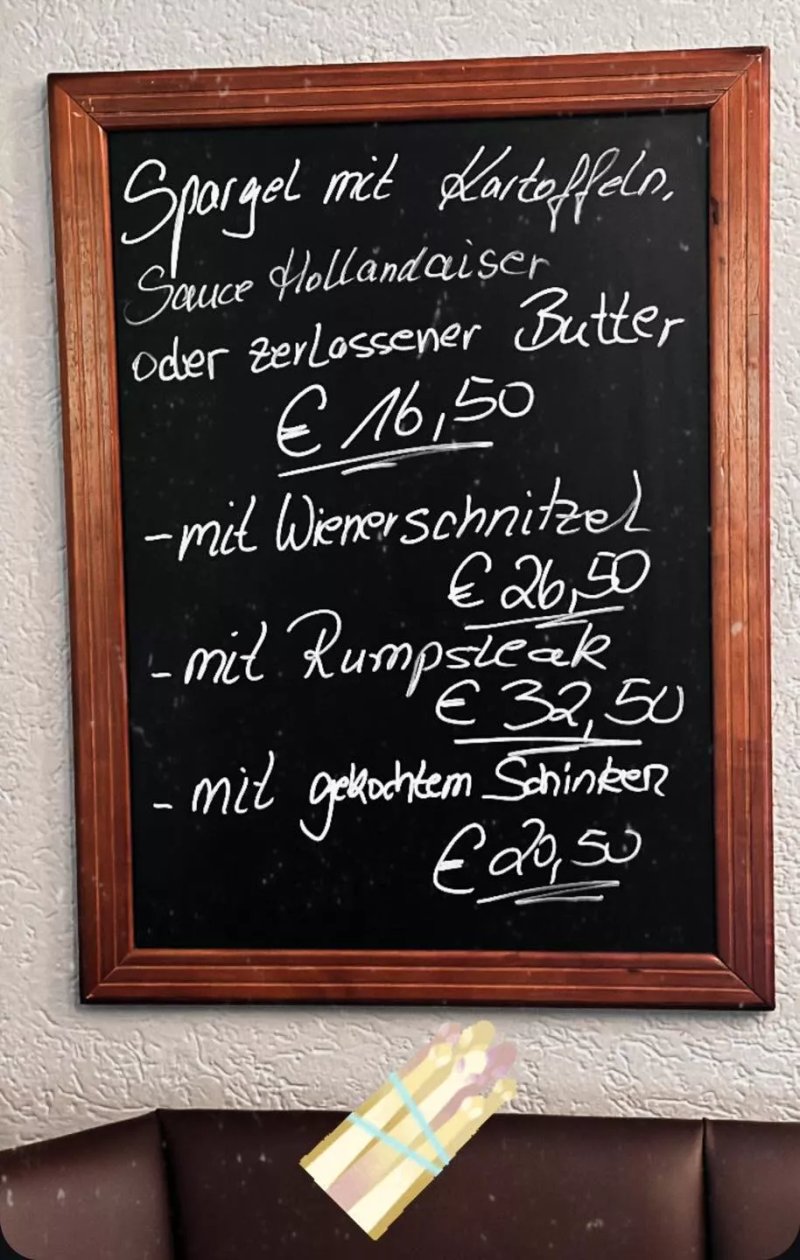 Spargel mit Kartoffeln,
Sauce Hollandaiser
oder zerlassener Butter
€ 16,50
- mit Wienerschnitzel
€ 26,50
- mit Rumpsteak
€ 32,50
- mit gekochtem Schinken
€ 20,50